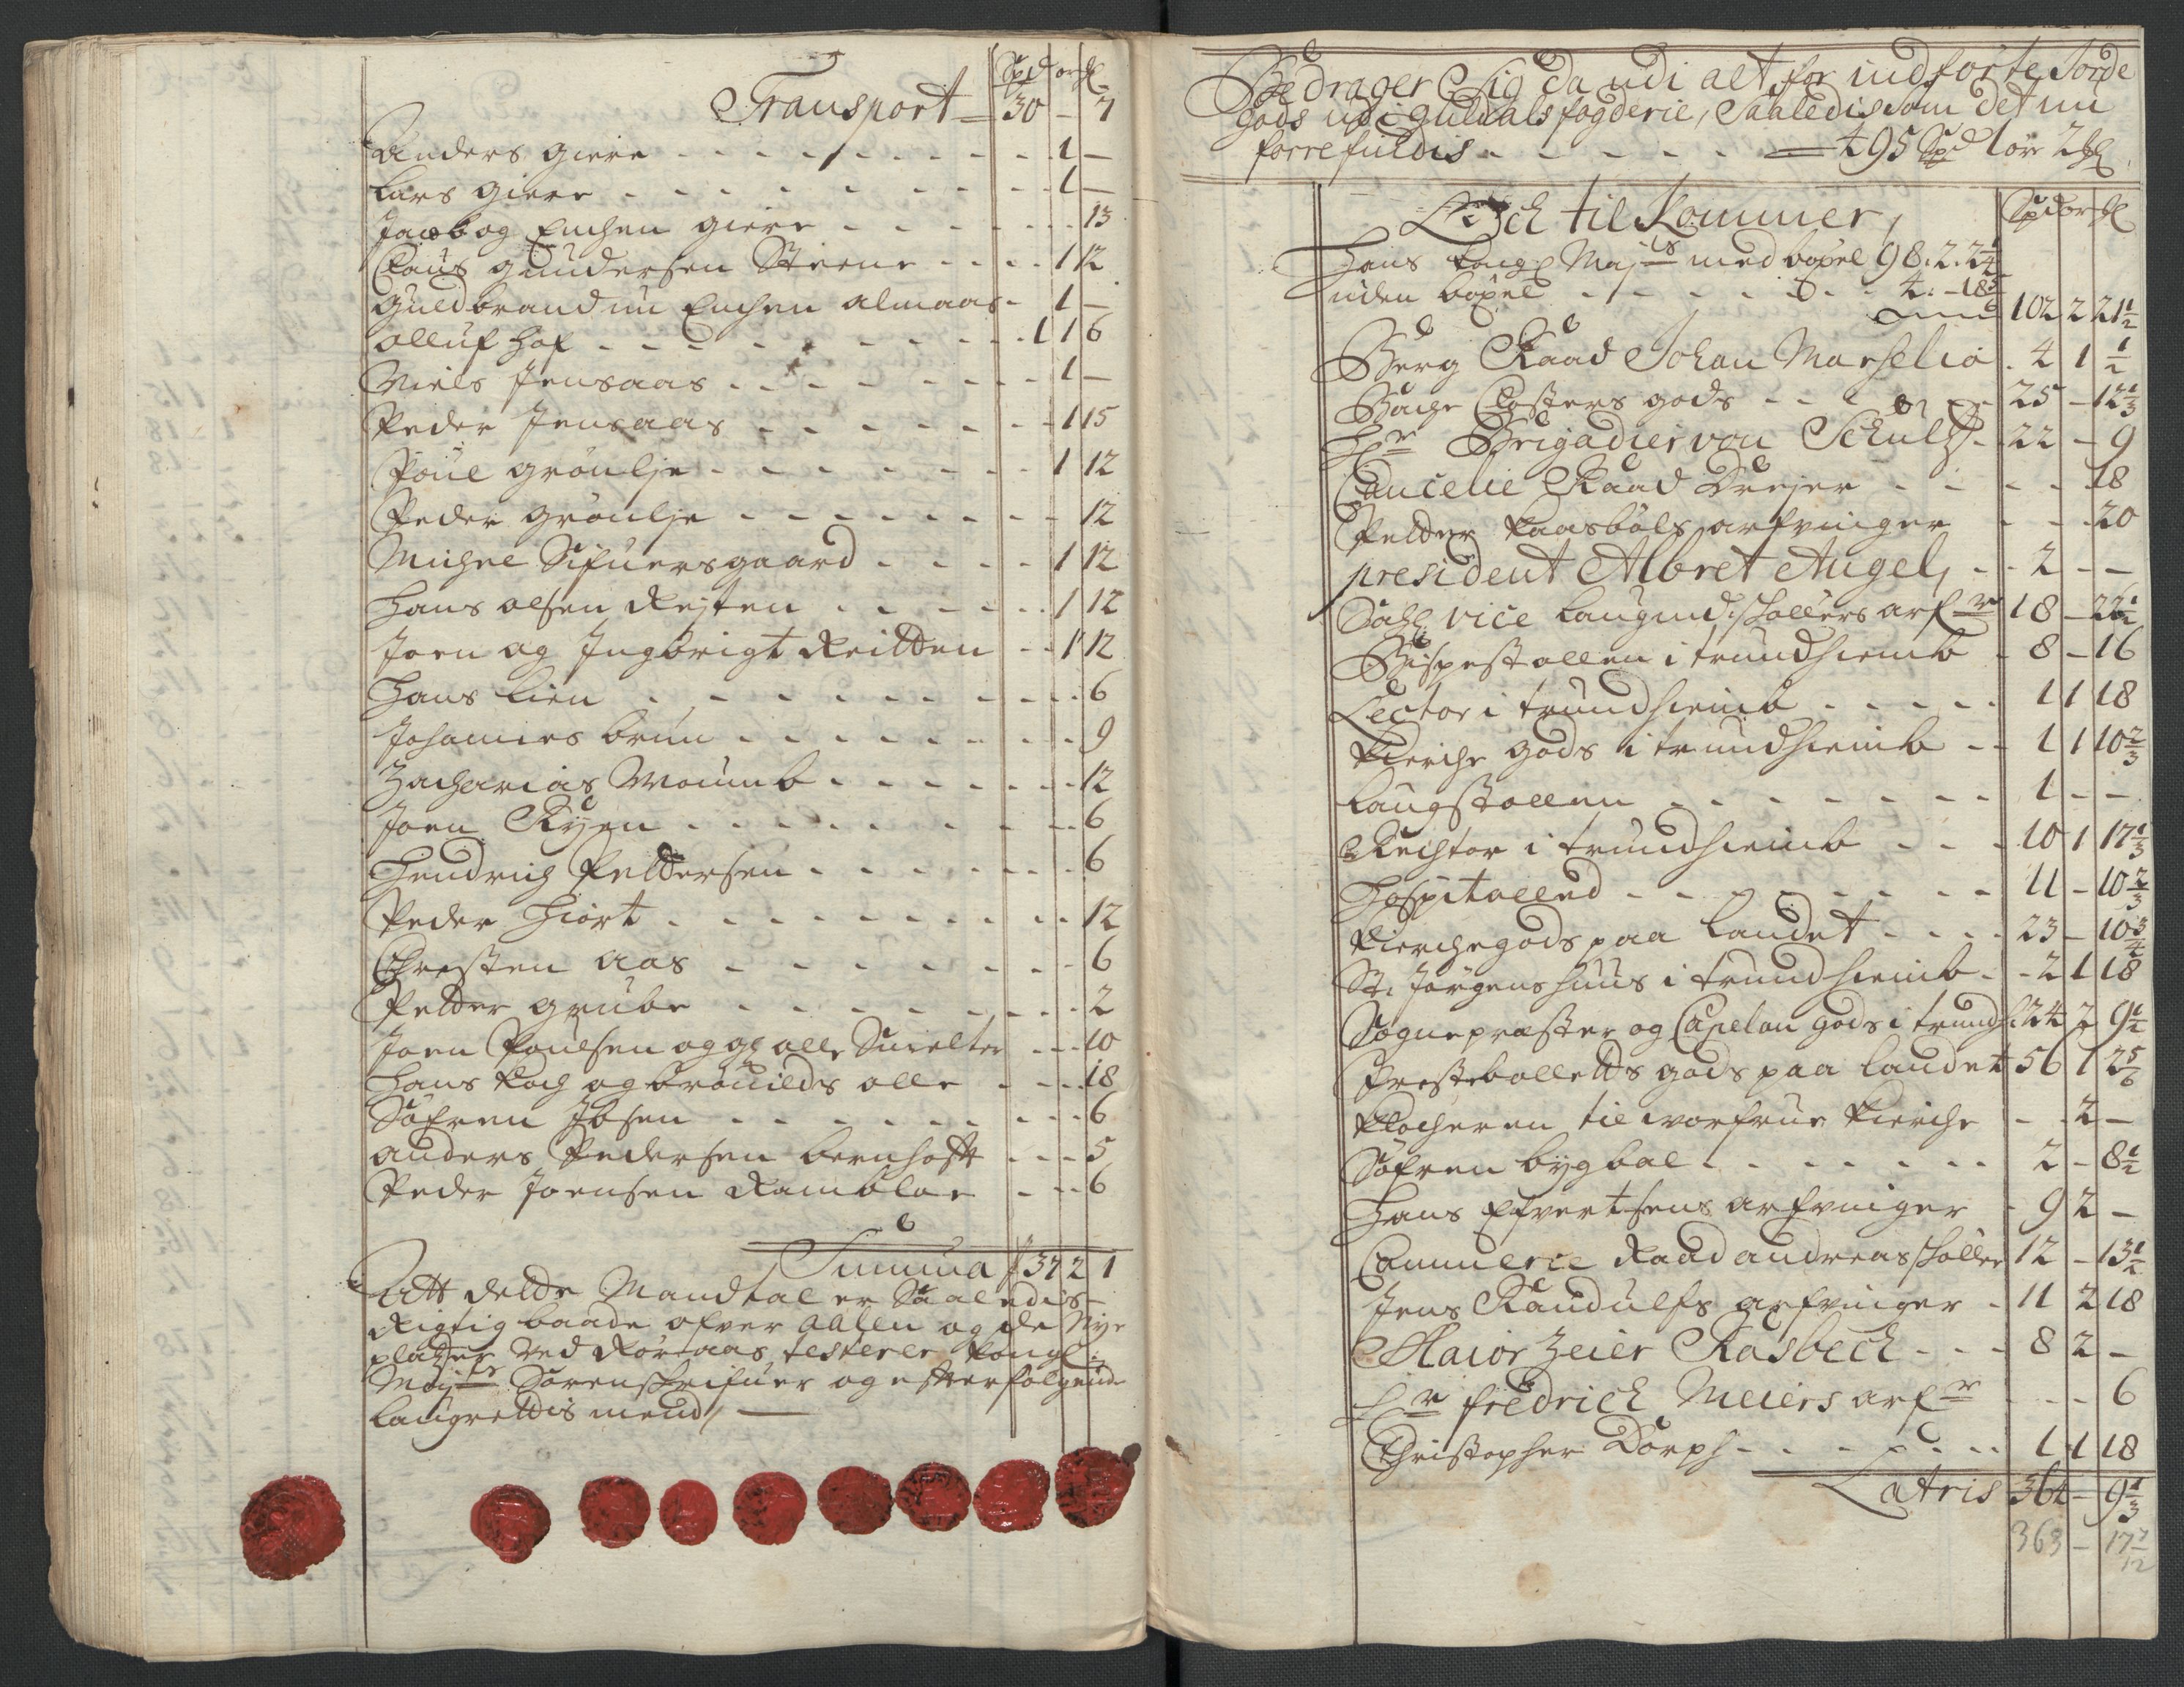 Spd ort ß
Transport 30 - 7
Anders giere - 1 -
Lars giere - 1 -
Jacob og Enchen giere - 13
Claus gundersen Steene - 1 12
Guldbrand nu Enchen almaas - 1 -
olluf hof - 1 1 6
Niels Jensaas - 1 -
Peder Jensaas - 1 15
Poul grönlje - 1 12
Peder grönlje - 12
Michel Sifuersgaard - 1 12
Hans olsen Rejten - 1 12
Joen og Ingbrigt Reitten - 1 12
Hans lien - 6
Johannes brun - 9
Zacharias - 12
Joen Ryen - 6
Hendrich Peddersen - 6
Peder Hiort - 12
Christen aas - 6
Pedder grube - 2
Joen Poulsen og gl olle Smelter - 10
Hans Koch og olle - 18
Söfren Ibsen - 6
anders Pedersen bernhoft - 5
Peder Joensen Ramblae - 6
Summa 37 2 1
Att dette Mandtal er Saaledis
Rigtig baade ofver aalen og de Nye
pladser ved Röraas testerer Kongl:
Maj:ts Sorenschrifuer og efterfölgende
laugrettis mend,
Bedrager Sig da udi alt for indförte Jorde
gods udi Guldals fogderie, Saaledis som det nu
forrefindis - 495 Spd 1 ort 2 ß
Och til Kommer, Spd ort ß
Hans Kongl Maj:ts med böxel 98. 2. 2 3/4
uden böxel 4: - 18 3/4
102 2 21 1/2
Berg Raad Johan Marselio 4 1 1/2
Bache Closters gods - 25 - 12 1/3
Hr Brigadier von Schults - 22 - 9
Cancelie Raad Dreyer - 18
Pedder Kaasböls arfvinger - 20
president Albret Angel, - 2 - -
Sahl vice laugmd: schöllers arf:r 18 - 22 1/2
Bispestollen i trundhiemb 8 - 16
Lector i trundhiemb - 1 1 18
Kierche gods i trundhiemb - 1 1 10 2/3
Laugstollen - 1 - -
Rechtor i trundhiemb - 10 1 17 1/3
Hospitalled - 11 - 10 2/3
Kierchegods paa landet - 23 - 10 3/4
St. Jörgens huus i trundhiemb - 2 1 18
Sognepræster og Capelan gods i trundh: 24 2 9 1/2
Prestebolletts gods paa landet 56 1 2 5/6
Klocheren til vorfrue Kierche - 2 -
Söfren bygbal - 2 - 8 1/2
Hans Efvertsens arfvinger - 9 2 -
Commerce Raad andreas schöller 12 - 13 1/2
Jens Randulfs arfvinger - 11 2 18
Maior Zeier Rosbech - 8 2 -
Hr fredrich Meiers arf:r - 6
Christopher Dorph - 1 1 18
Latris 364 - 9 1/3
363 - 17 7/12